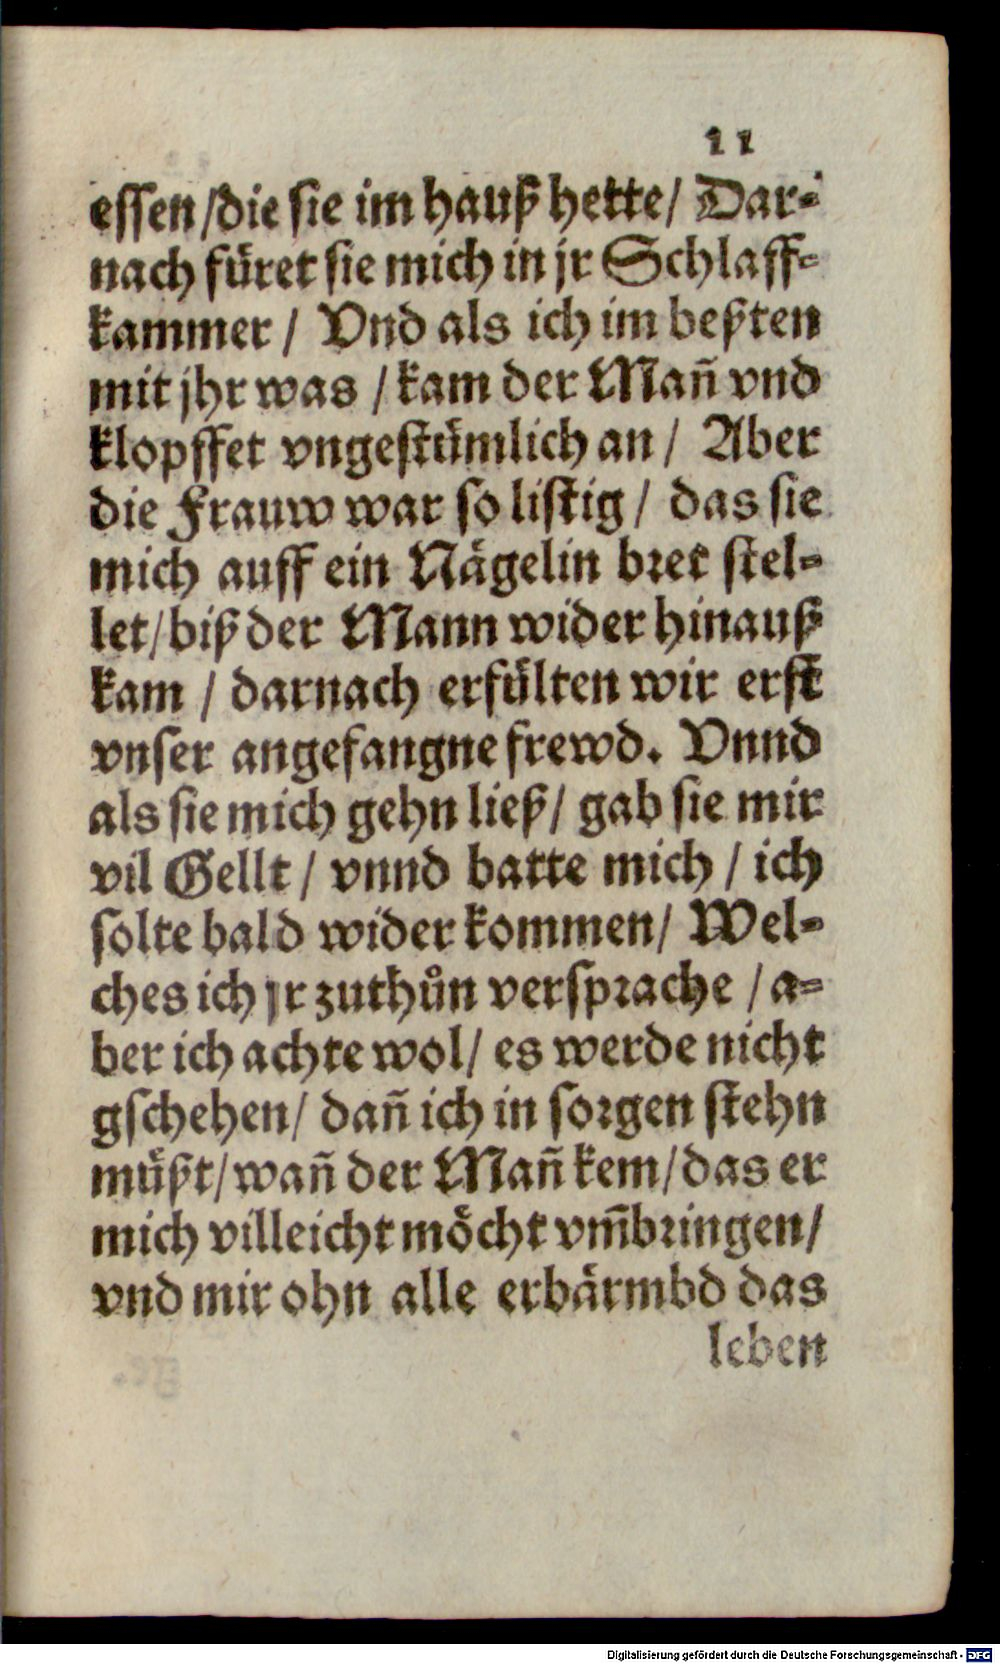 11
essen /die sie im hauß hette/ Dar⸗
nach füret sie mich in jr Schlaff⸗
kammer / Vnd als ich im beßten
mit jhr was / kam der Mañ vnd
klopffet vngestümlich an / Aber
die Frauw war so listig / das sie
mich auff ein Nägelin bret stel⸗
let/biß der Mann wider hinauß
kam / darnach erfülten wir erst
vnser angefangne frewd. Vnnd
als sie mich gehn ließ/ gab sie mir
vil Gellt / vnnd batte mich / ich
solte bald wider kommen/ Wel⸗
ches ich jr zuthůn versprache / a⸗
ber ich achte wol/ es werde nicht
gschehen/ dañ ich in sorgen stehn
müßt/wañ der Mañ kem/das er
mich villeicht möcht vm̃bringen/
vnd mir ohn alle erbärmbd das
leben
Digitalisierung gefördert durch die Deutsche Forschungsgemeinschaft - DFG